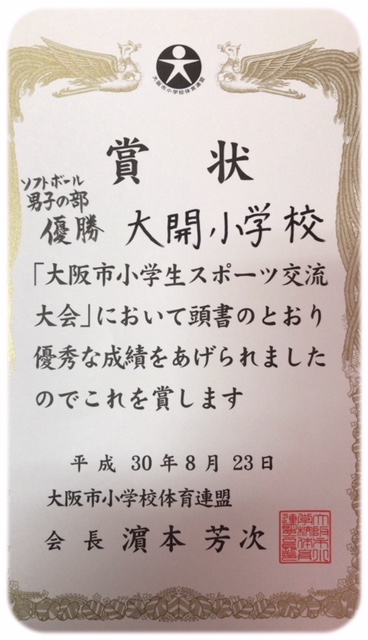 大阪市小学校体育連盟
賞 状
ソフトボール
男子の部
優勝 大開小学校
「大阪市小学生スポーツ交流
大会」において頭書のとおり
優秀な成績をあげられました
のでこれを賞します
平成 30 年 8 月 23 日
大阪市小学校体育連盟
会長 濵本 芳次